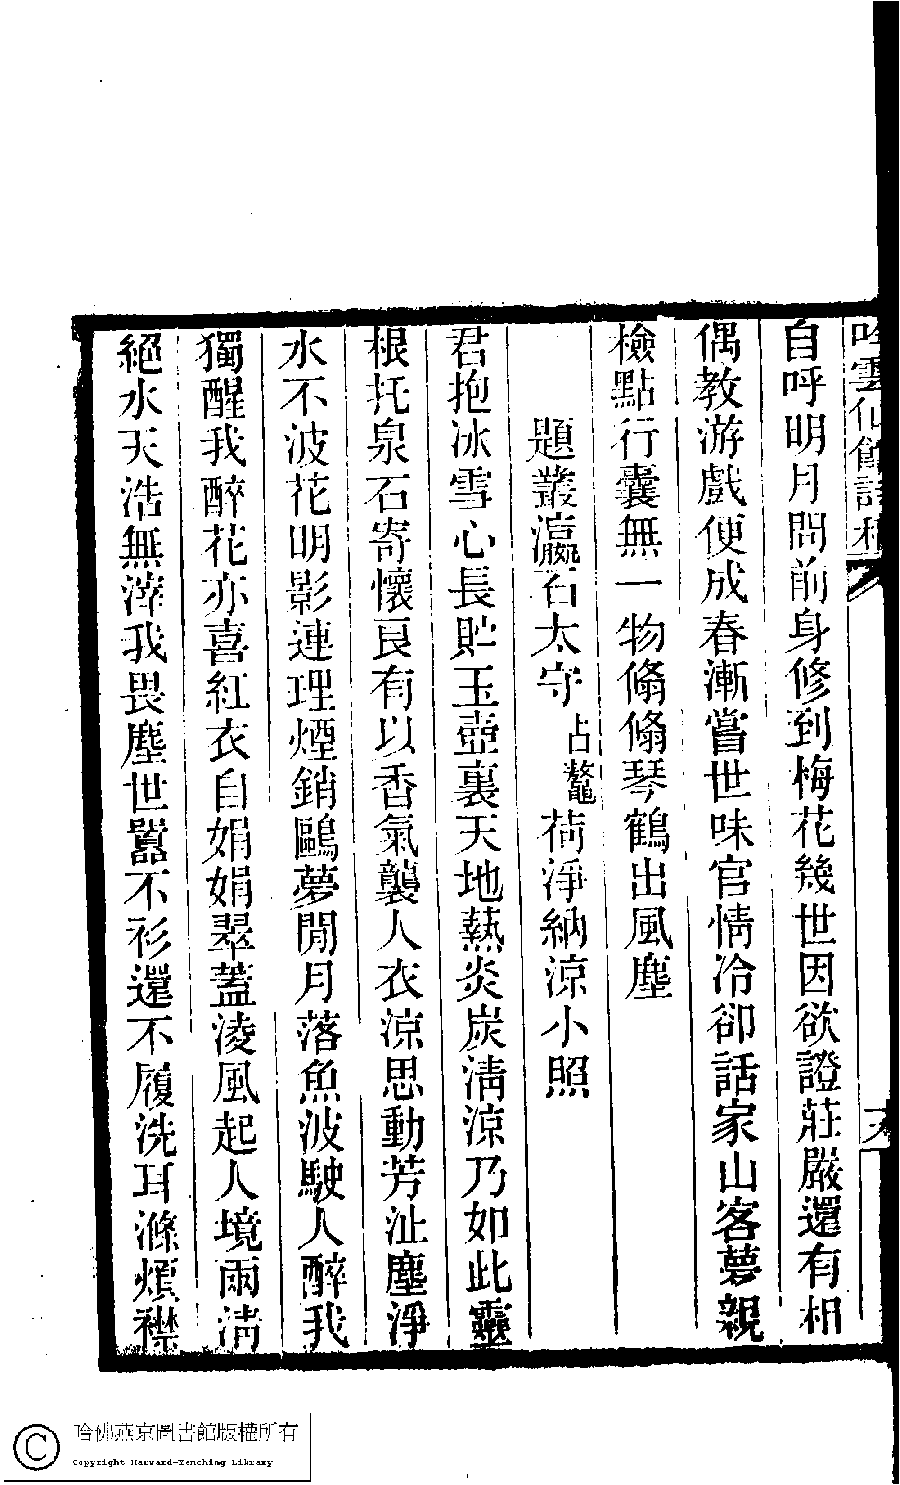 吟雲仙館詩
自呼明月問前身修到梅花幾世因欲證莊嚴還有相
偶教游戲便成春漸嘗世味官情冷卻話家山客夢親
檢點行囊無一物翛翛琴鶴出風塵
題叢瀛石太守占鼇荷淨納涼小照
君抱冰雪心長貯玉壺裏天地熱炎炭淸涼乃如此靈
根托泉石寄懷良有以香氣襲人衣涼思動芳沚塵淨
水不波花明影連理煙銷鷗夢閒月落魚波駛人醉我
獨醒我醉花亦喜紅衣自娟娟翠蓋淩風起人境兩淸
絕水天浩無滓我畏塵世囂不衫還不履洗耳滌煩襟
哈佛燕京圖書館版權所有
Copyright Harvard-Yenching Library